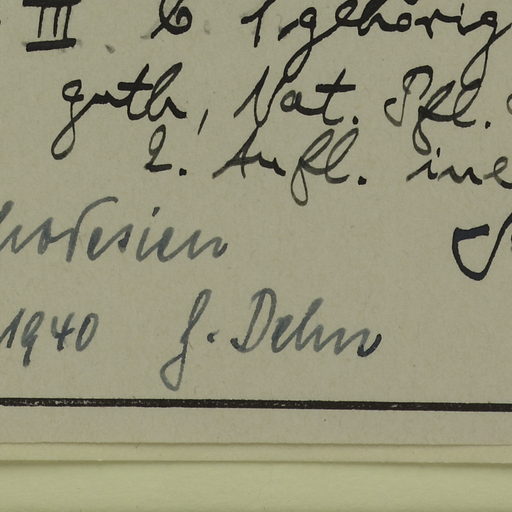 III 6 1. gehörig
guth, Nat. Pfl.
2. Aufl. ine
hodesien
1940 G. Dehn